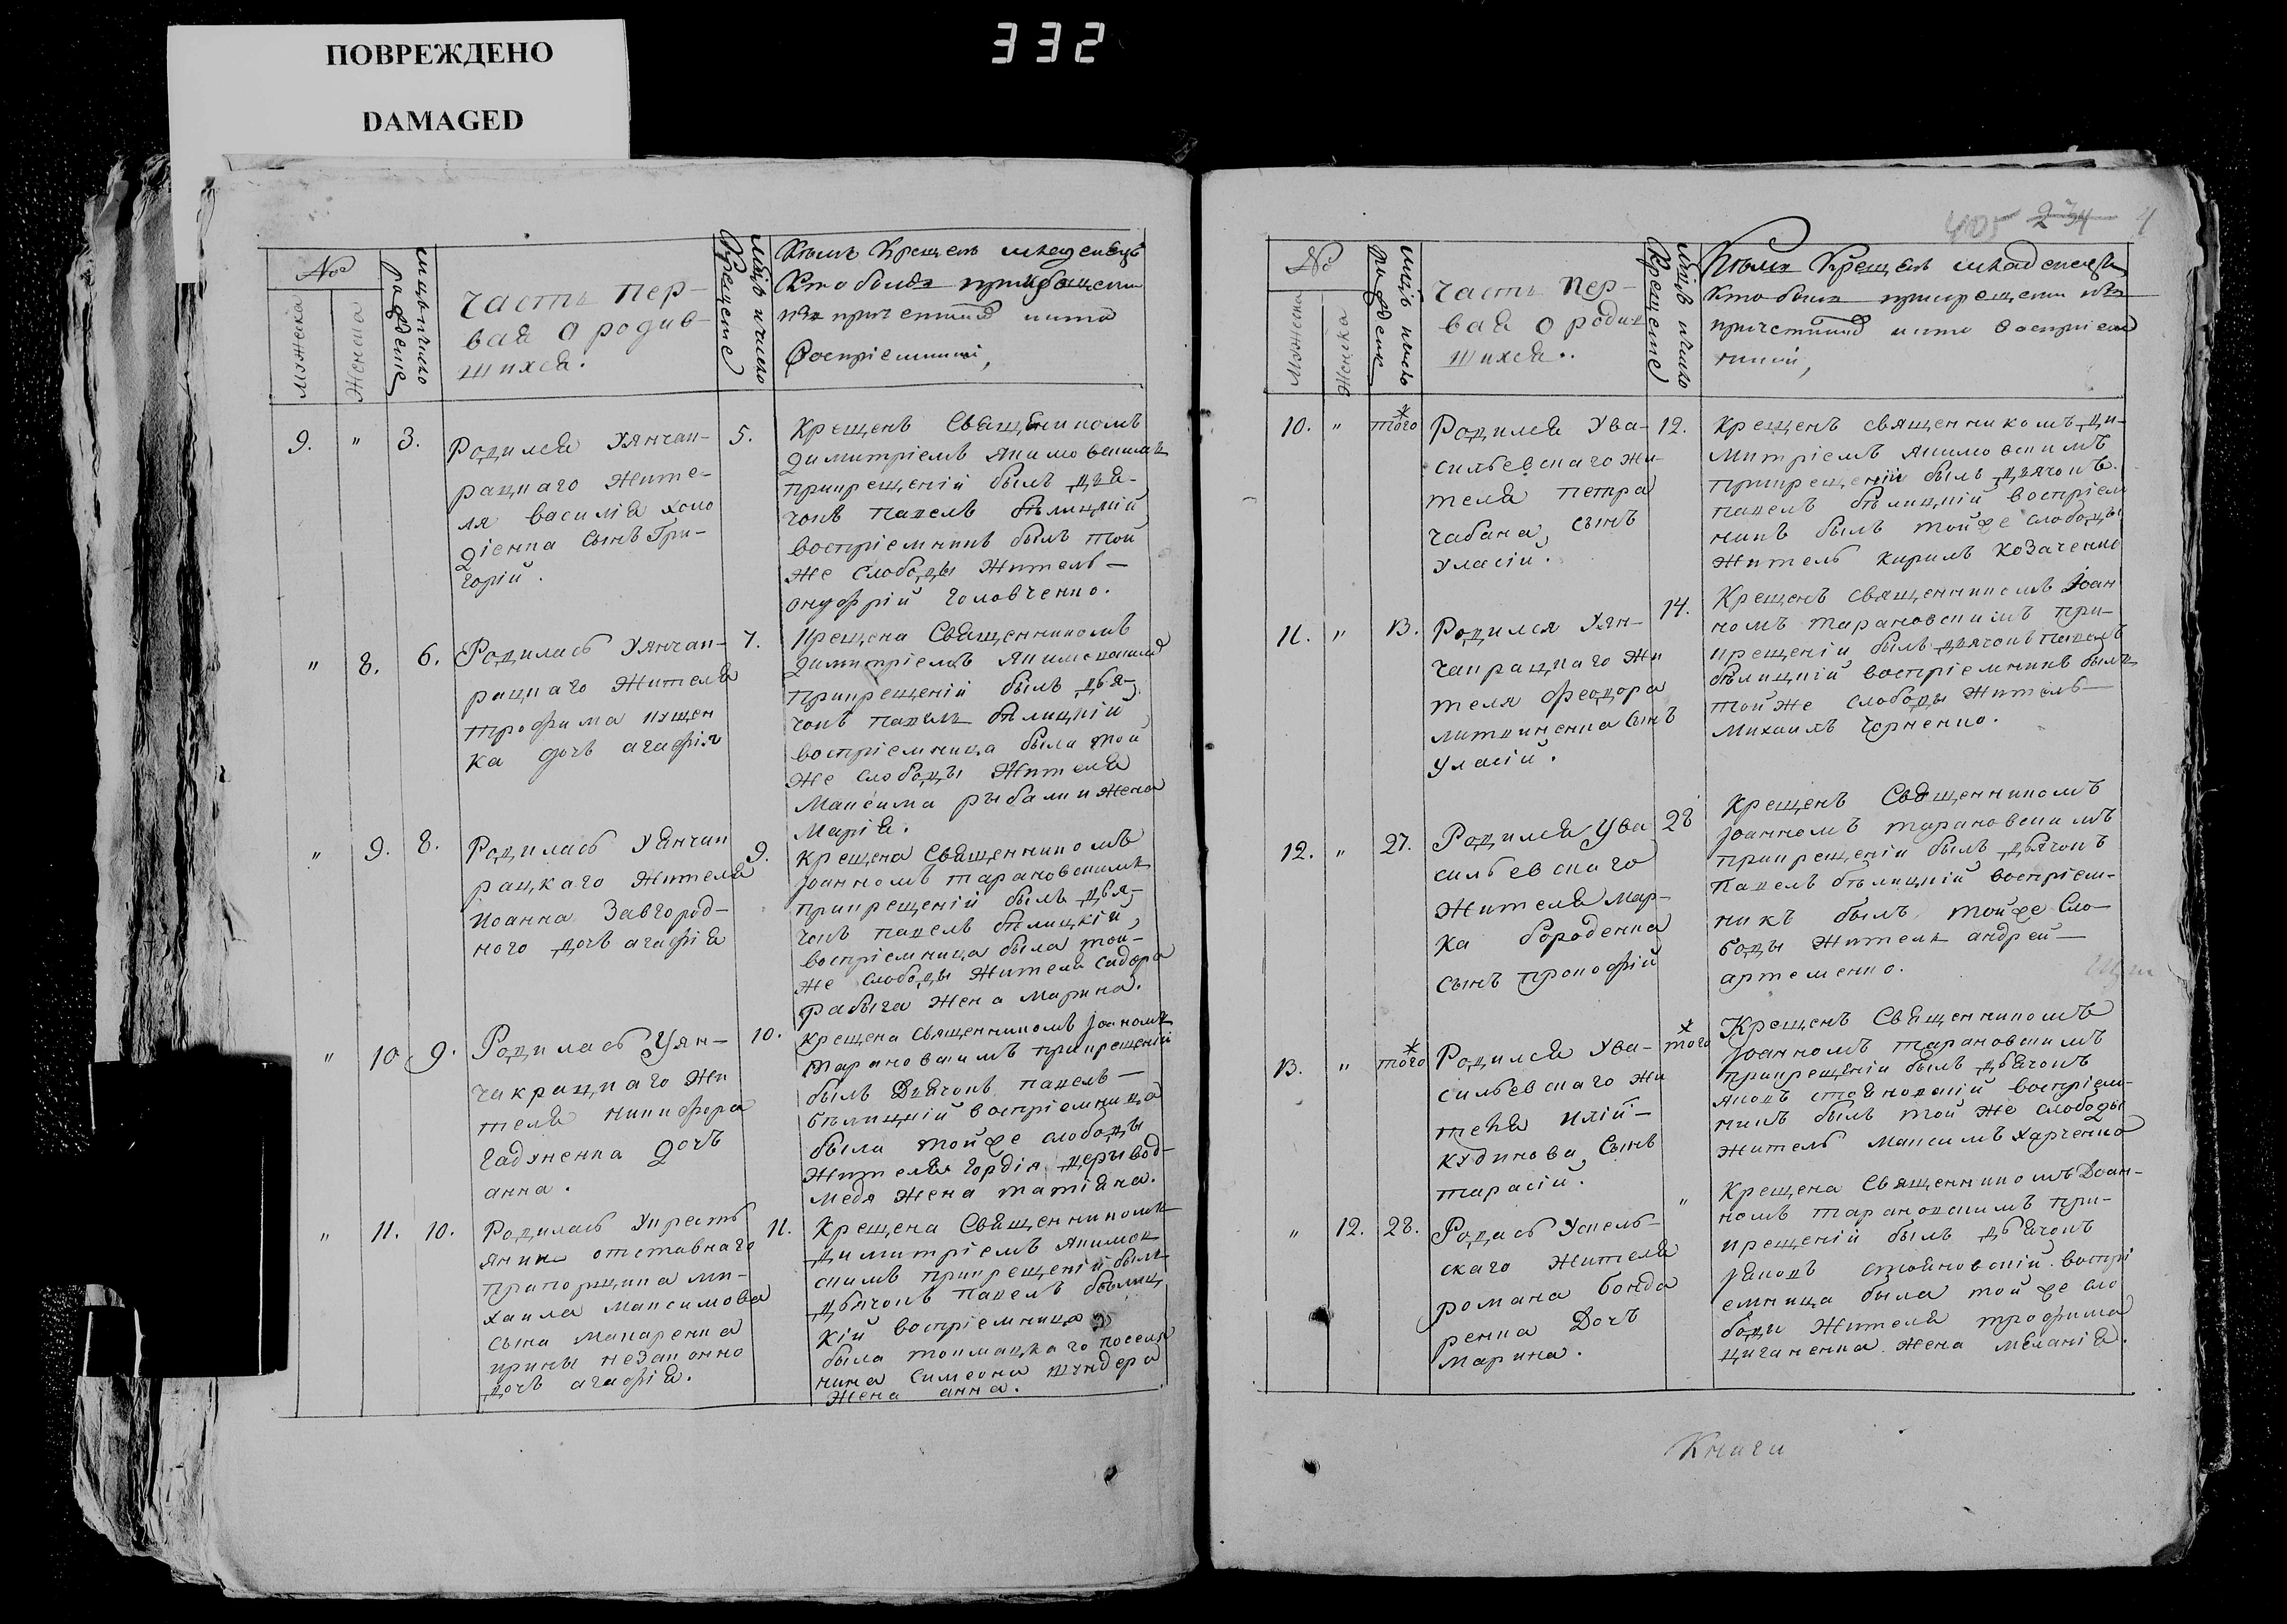 ПОВРЕЖДЕНО
DAMAGED
332
405 234 4
№
мужеска
женска
мцъ и число
рождение
часть пер-
вая о родив-
шихся.
мцъ и число
крещение
Кѣмъ крещенъ младенецъ
Кто былъ при крещении
изъ причетниковъ и кто
восприемники,
9. " 3. 5.
Родился Уянчак-
рацкаго жите-
ля василія коло
діенка сынъ Гри-
горій.
Крещенъ Священникомъ
димитріемъ якимовскимъ
прикрещеній былъ дья-
чокъ павелъ бѣлицкій
воспріемникъ былъ той
же слободы житель-
онуфрій головченко.
" 8. 6. 7.
Родилась Уянчак-
рацкаго жителя
трофима кущен
ка дочь агафія
Крещена Священникомъ
димитріемъ якимовскимъ
прикрещеній былъ дья-
чокъ павелъ бѣлицкій
воспріемница была той
же слободы жителя
Максима рыбалки жена
Марія.
" 9. 8. 9.
Родилась Уянчак
рацкаго жителя
иоанна Завгород-
ного дочь агафія
крещена Священникомъ
іоанномъ тарановскимъ
прикрещеній былъ дья-
чокъ павелъ бѣлицкій,
воспріемница была той-
же слободы жителя сидора
рабыга жена марина.
" 10. 9. 10.
Родилась Уян-
чакрацкаго жи
теля никифора
гадяненка дочь
анна.
крещена священникомъ іоаномъ
тарановскимъ прикрещеній
былъ дьячокъ павелъ-
бѣлицкій воспріемница
была тойже слободы
жителя гордія перевод-
медя жена татіана.
" 11. 10. 11.
Родилась Укресть
янки отставнаго
прапорщика ми-
хаила максимова
сына макаренка
ирины незаконно
дочь агафія.
Крещена Священникомъ
димитріемъ якимов
скимъ прикрещеній былъ
дьячокъ павелъ бѣлиц
кій воспріемница
была токмацкаго поселя
нина симеона тундера
жена анна.
№
мужеска
женска
мцъ и число
рождение
часть пер-
вая о родив
шихся..
мцъ и число
крещение
Кѣмъ крещенъ младенецъ
кто былъ при крещении изъ
причетниковъ и кто восприем
ники,
10. " того 12.
Родился Ува-
сильевскаго жи-
теля петра
чабана, сынъ
Уласій.
Крещенъ священникомъ ди-
митріемъ якимовскимъ
прикрещеніи былъ дьячокъ
павелъ бѣлицкій воспріем
никъ былъ тойже слободы
житель кирилъ козаченко
11. " 13. 14.
Родился Уян-
чакрацкаго жи
теля феодора
литвиненка сынъ
Уласій.
Крещенъ священникомъ іоан
номъ тарановскимъ при-
крещеніи былъ дьячокъ павелъ
бѣлицкій воспріемникъ былъ
той же слободы житель-
михаилъ чорненко.
12. " 27. 28
Родился Ува
сильевскаго
жителя мар-
ка бороденка
сынъ прокофій
Крещенъ Священникомъ
іоанномъ тарановскимъ
прикрещеніи былъ дьячокъ
павелъ бѣлицкій воспріем-
никъ былъ тойже сло-
боды житель андрей-
артеменко.
13. " того того
Родился Ува-
сильевскаго жи
теля иліи-
кудинова сынъ
тарасій.
Крещенъ Священникомъ
іоанномъ тарановскимъ
прикрещеніи былъ дьячокъ
яковъ стояновскій воспріем-
никъ былъ той же слободы
житель максимъ харченко
" 12. 28. "
Родась Успель-
скаго жителя
романа бонда
ренка дочь
марина.
Крещена Священникомъ іоан-
номъ тарановскимъ при-
крещеній былъ дьячокъ
яковъ стояновскій воспрі
емница была той же сло
боды жителя трофима
циганенка жена меланія.
Книги